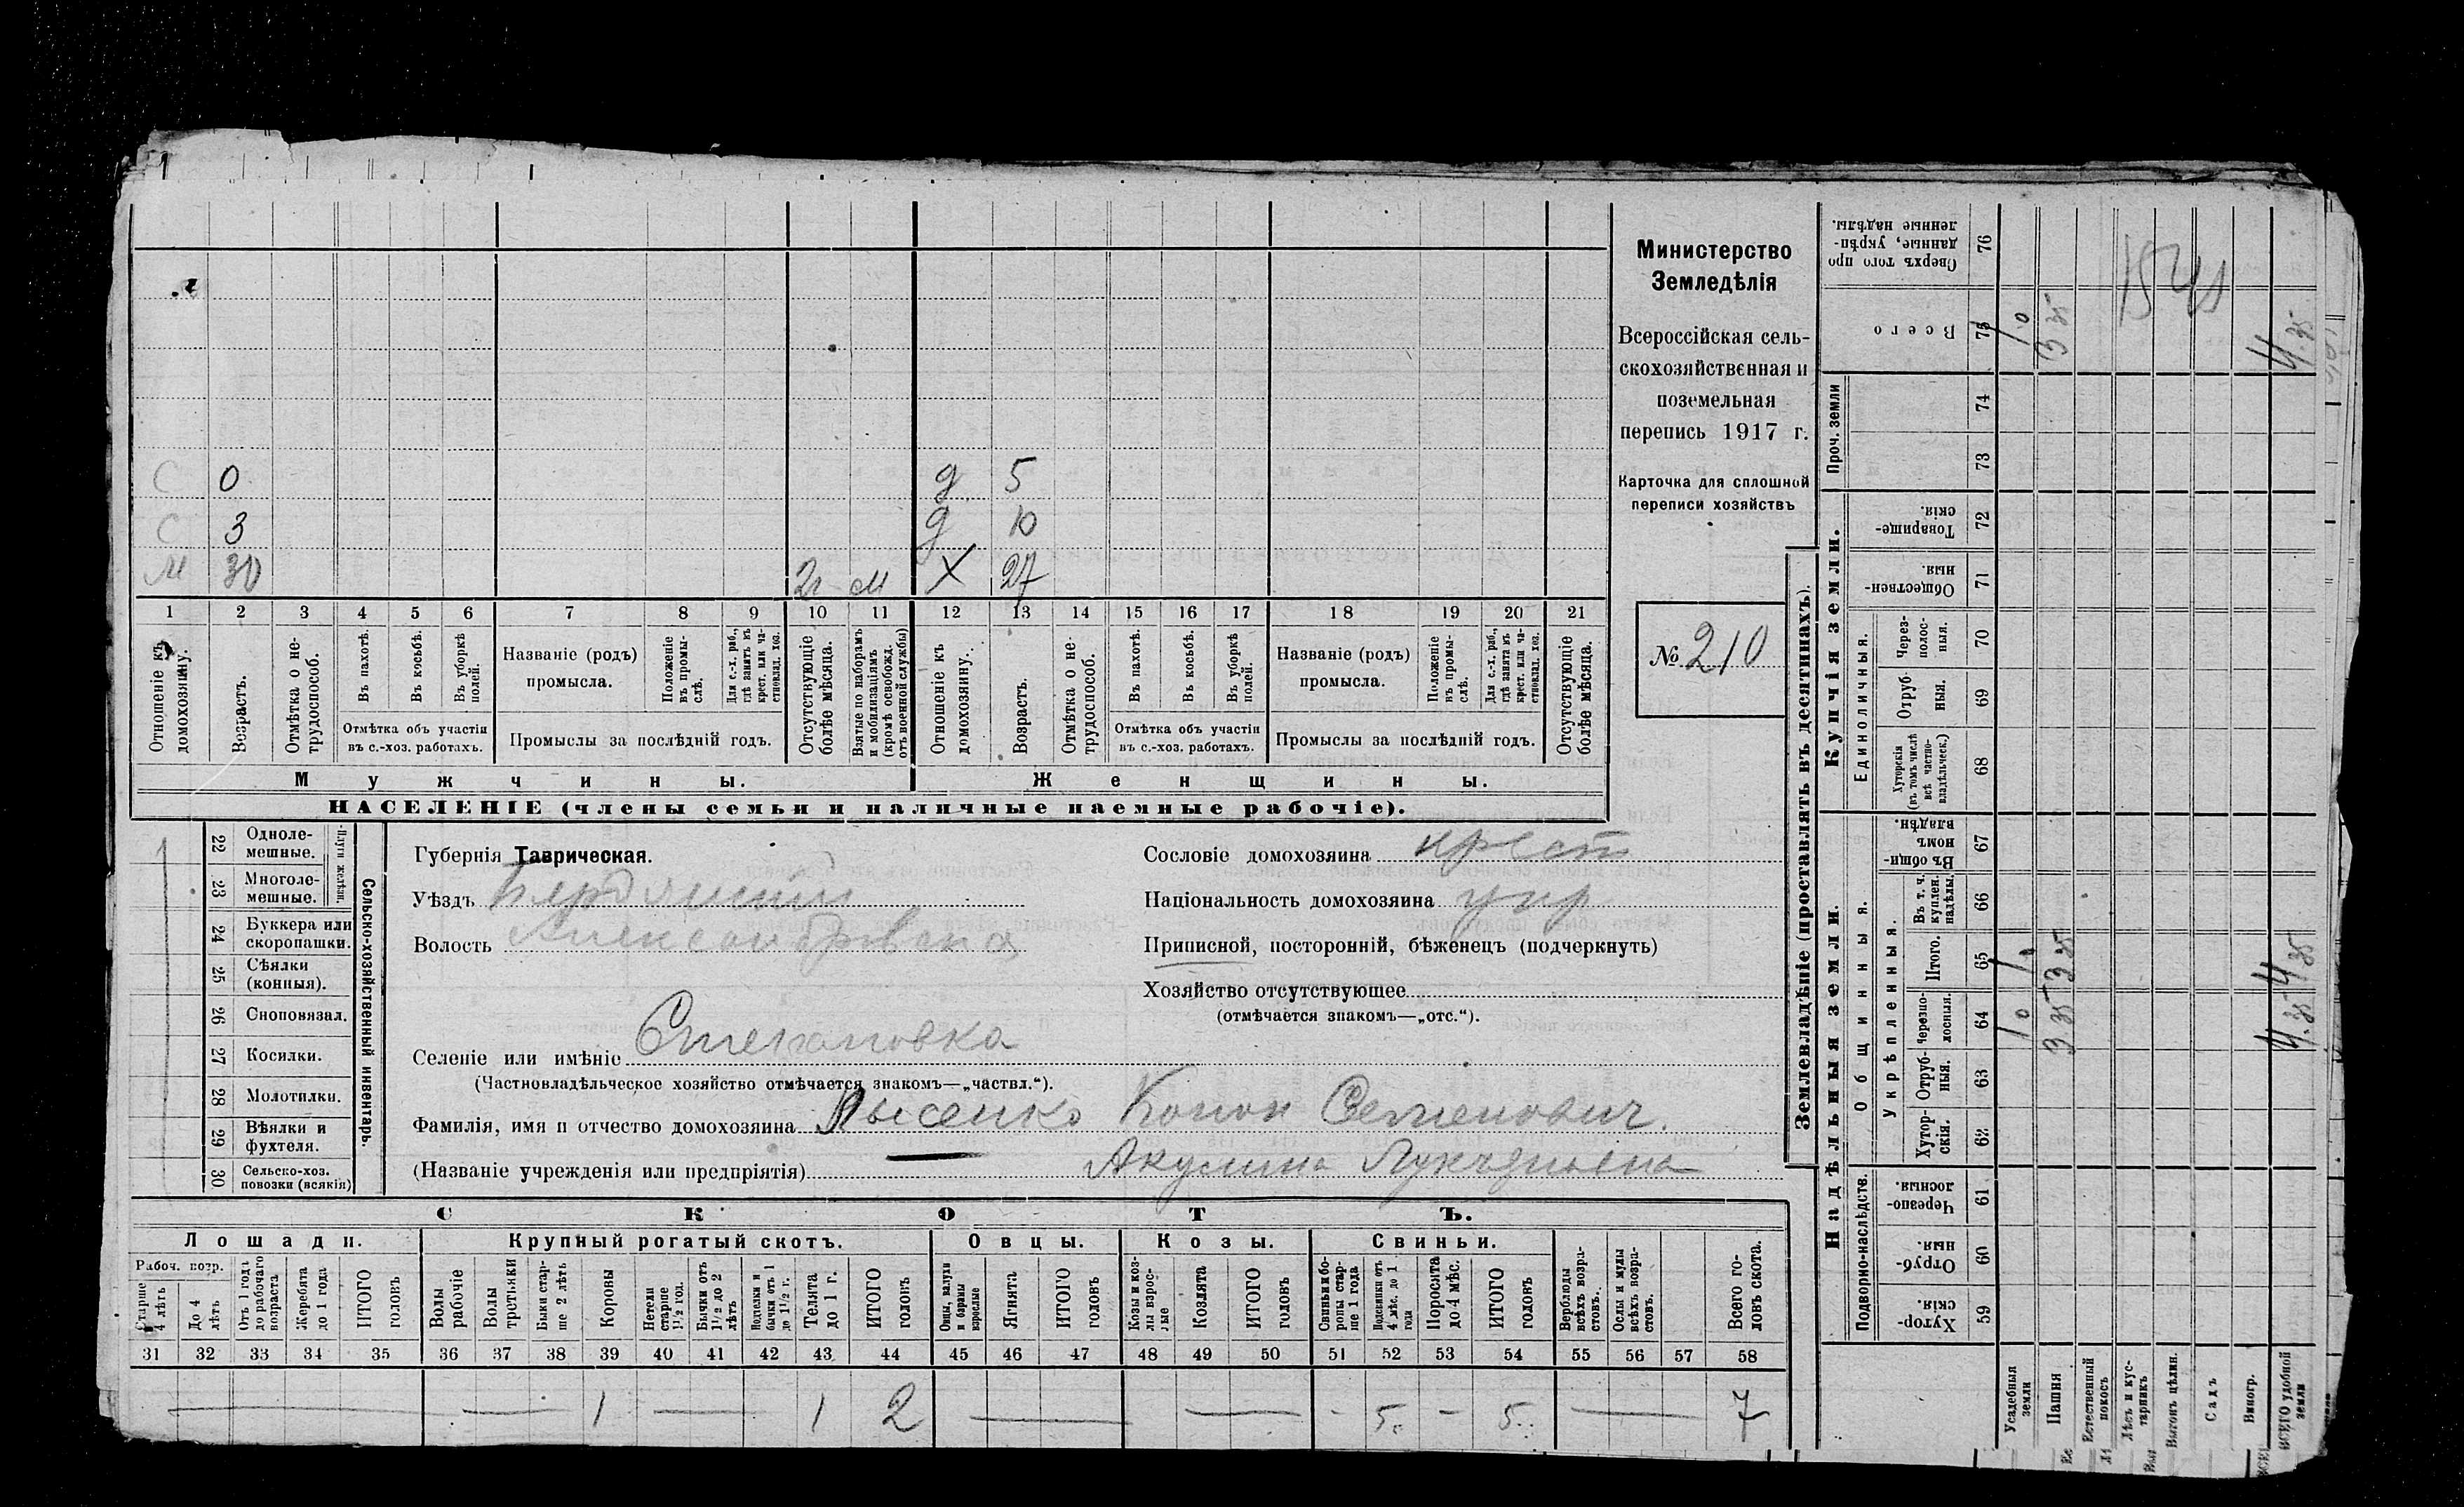 С 0 д 5
С 3 д 10
М 30 2г м Х 27
1 2 3 4 5 6 7 8 9 10 11 12 13 14 15 16 17 18 19 20 21
Отношеніе къ домохозяину.
Возрастъ.
Отмѣтка о не-
трудоспособ.
Въ пахотѣ.
Въ косьбѣ.
Въ уборкѣ
полей.
Отмѣтка объ участіи
въ с.-хоз. работахъ.
Названіе (родъ)
промысла.
Положеніе
въ промы-
слѣ.
Для с.-х. раб.,
гдѣ занятъ въ
крест. или ча-
стновлад. хоз.
Промыслы за послѣдній годъ.
Отсутствующіе
болѣе мѣсяца.
Взятые по наборамъ
и мобилизаціямъ
(кромѣ освобожд.
отъ военной службы)
Отношеніе къ
домохозяину.
Возрастъ.
Отмѣтка о не-
трудоспособ.
Въ пахотѣ.
Въ косьбѣ.
Въ уборкѣ
полей.
Отмѣтка объ участіи
въ с.-хоз. работахъ.
Названіе (родъ)
промысла.
Положеніе
въ промы-
слѣ.
Для с.-х. раб.,
гдѣ занятъ въ
крест. или ча-
стновлад. хоз.
Промыслы за послѣдній годъ.
Отсутствующіе
болѣе мѣсяца.
Мужчины. Женщины.
НАСЕЛЕНІЕ (члены семьи и наличные наемные рабочіе).
Министерство
Земледѣлія
Всероссійская сель-
скохозяйственная и
поземельная
перепись 1917 г.
Карточка для сплошной
переписи хозяйствъ
№ 210
22 Одноле-
мешные.
23 Многоле-
мешные.
Плуги желѣзн.
24 Буккера или
скоропашки.
25 Сѣялки
(конныя).
26 Сноповязал.
27 Косилки.
28 Молотилки.
29 Вѣялки и
фухтеля.
30 Сельско-хоз.
повозки (всякія)
Сельско-хозяйственный инвентарь.
Губернія Таврическая.
Уѣздъ Бердянскій
Волость Александровская
Селеніе или имѣніе Степановка
(Частновладѣльческое хозяйство отмѣчается знакомъ—„частвл.“).
Фамилія, имя и отчество домохозяина Лысенко Конон Семенович.
(Названіе учрежденія или предпріятія) Акулина
Сословіе домохозяина крест
Національность домохозяина укр
Приписной, посторонній, бѣженецъ (подчеркнуть)
Хозяйство отсутствующее
(отмѣчается знакомъ—„отс.“).
СКОТЪ.
Лошади. Крупный рогатый скотъ. Овцы. Козы. Свиньи.
Рабоч. возр.
Старше
4 лѣтъ
До 4
лѣтъ
Отъ 1 года
до рабочаго
возраста
Жеребята
до 1 года
ИТОГО
головъ
Волы
рабочіе
Волы
третьяки
Быки стар-
ше 2 лѣтъ
Коровы
Нетели
старше
1½ год.
Бычки отъ
1½ до 2
лѣтъ
Подтелки и
бычки отъ 1
до 1½ г.
Телята
до 1 г.
ИТОГО
головъ
Овцы, валухи
и бараны
взрослые
Ягнята
ИТОГО
головъ
Козы и коз-
лы взрос-
лые
Козлята
ИТОГО
головъ
Свиньи и бо-
ровы стар-
ше 1 года
Подсвинки отъ
4 мѣс. до 1
года
Поросята
до 4 мѣс.
ИТОГО
головъ
Верблюды
всѣхъ возра-
стовъ.
Ослы и мулы
всѣхъ возра-
стовъ.
Всего го-
ловъ скота.
31 32 33 34 35 36 37 38 39 40 41 42 43 44 45 46 47 48 49 50 51 52 53 54 55 56 57 58
— — 1 — 1 2 — — - 5 - 5 — 7
Землевладѣніе (проставлять въ десятинахъ).
Надѣльныя земли. Купчія земли. Проч. земли
Подворно-наслѣдств.
Общинныя.
Укрѣпленныя.
Единоличныя.
Хутор-
скія. 59
Отруб-
ныя. 60
Черезпо-
лосныя. 61
Хутор-
скія. 62
Отруб-
ныя. 63
Черезпо-
лосныя. 64
Итого. 65
Въ т. ч.
куплен.
надѣлы. 66
Въ общи-
номъ
владѣн. 67
Хуторскія
(въ томъ числѣ
всѣ частно-
владѣльческ.) 68
Отруб-
ныя. 69
Через-
полос-
ныя. 70
Обществен-
ныя. 71
Товарище-
скія. 72
73
74
Всего 75
Сверхъ того про
данные, укрѣп-
ленные надѣлы. 76
Усадебныя
земли
1.0 1.0 1.0
Пашня
3 35 3 35 3 35
Естественный
покосъ
Лѣсъ и кус-
тарникъ
Выгонъ цѣлин.
Садъ
Виногр.
ВСЕГО удобной
земли
4.35 4.35 4.35